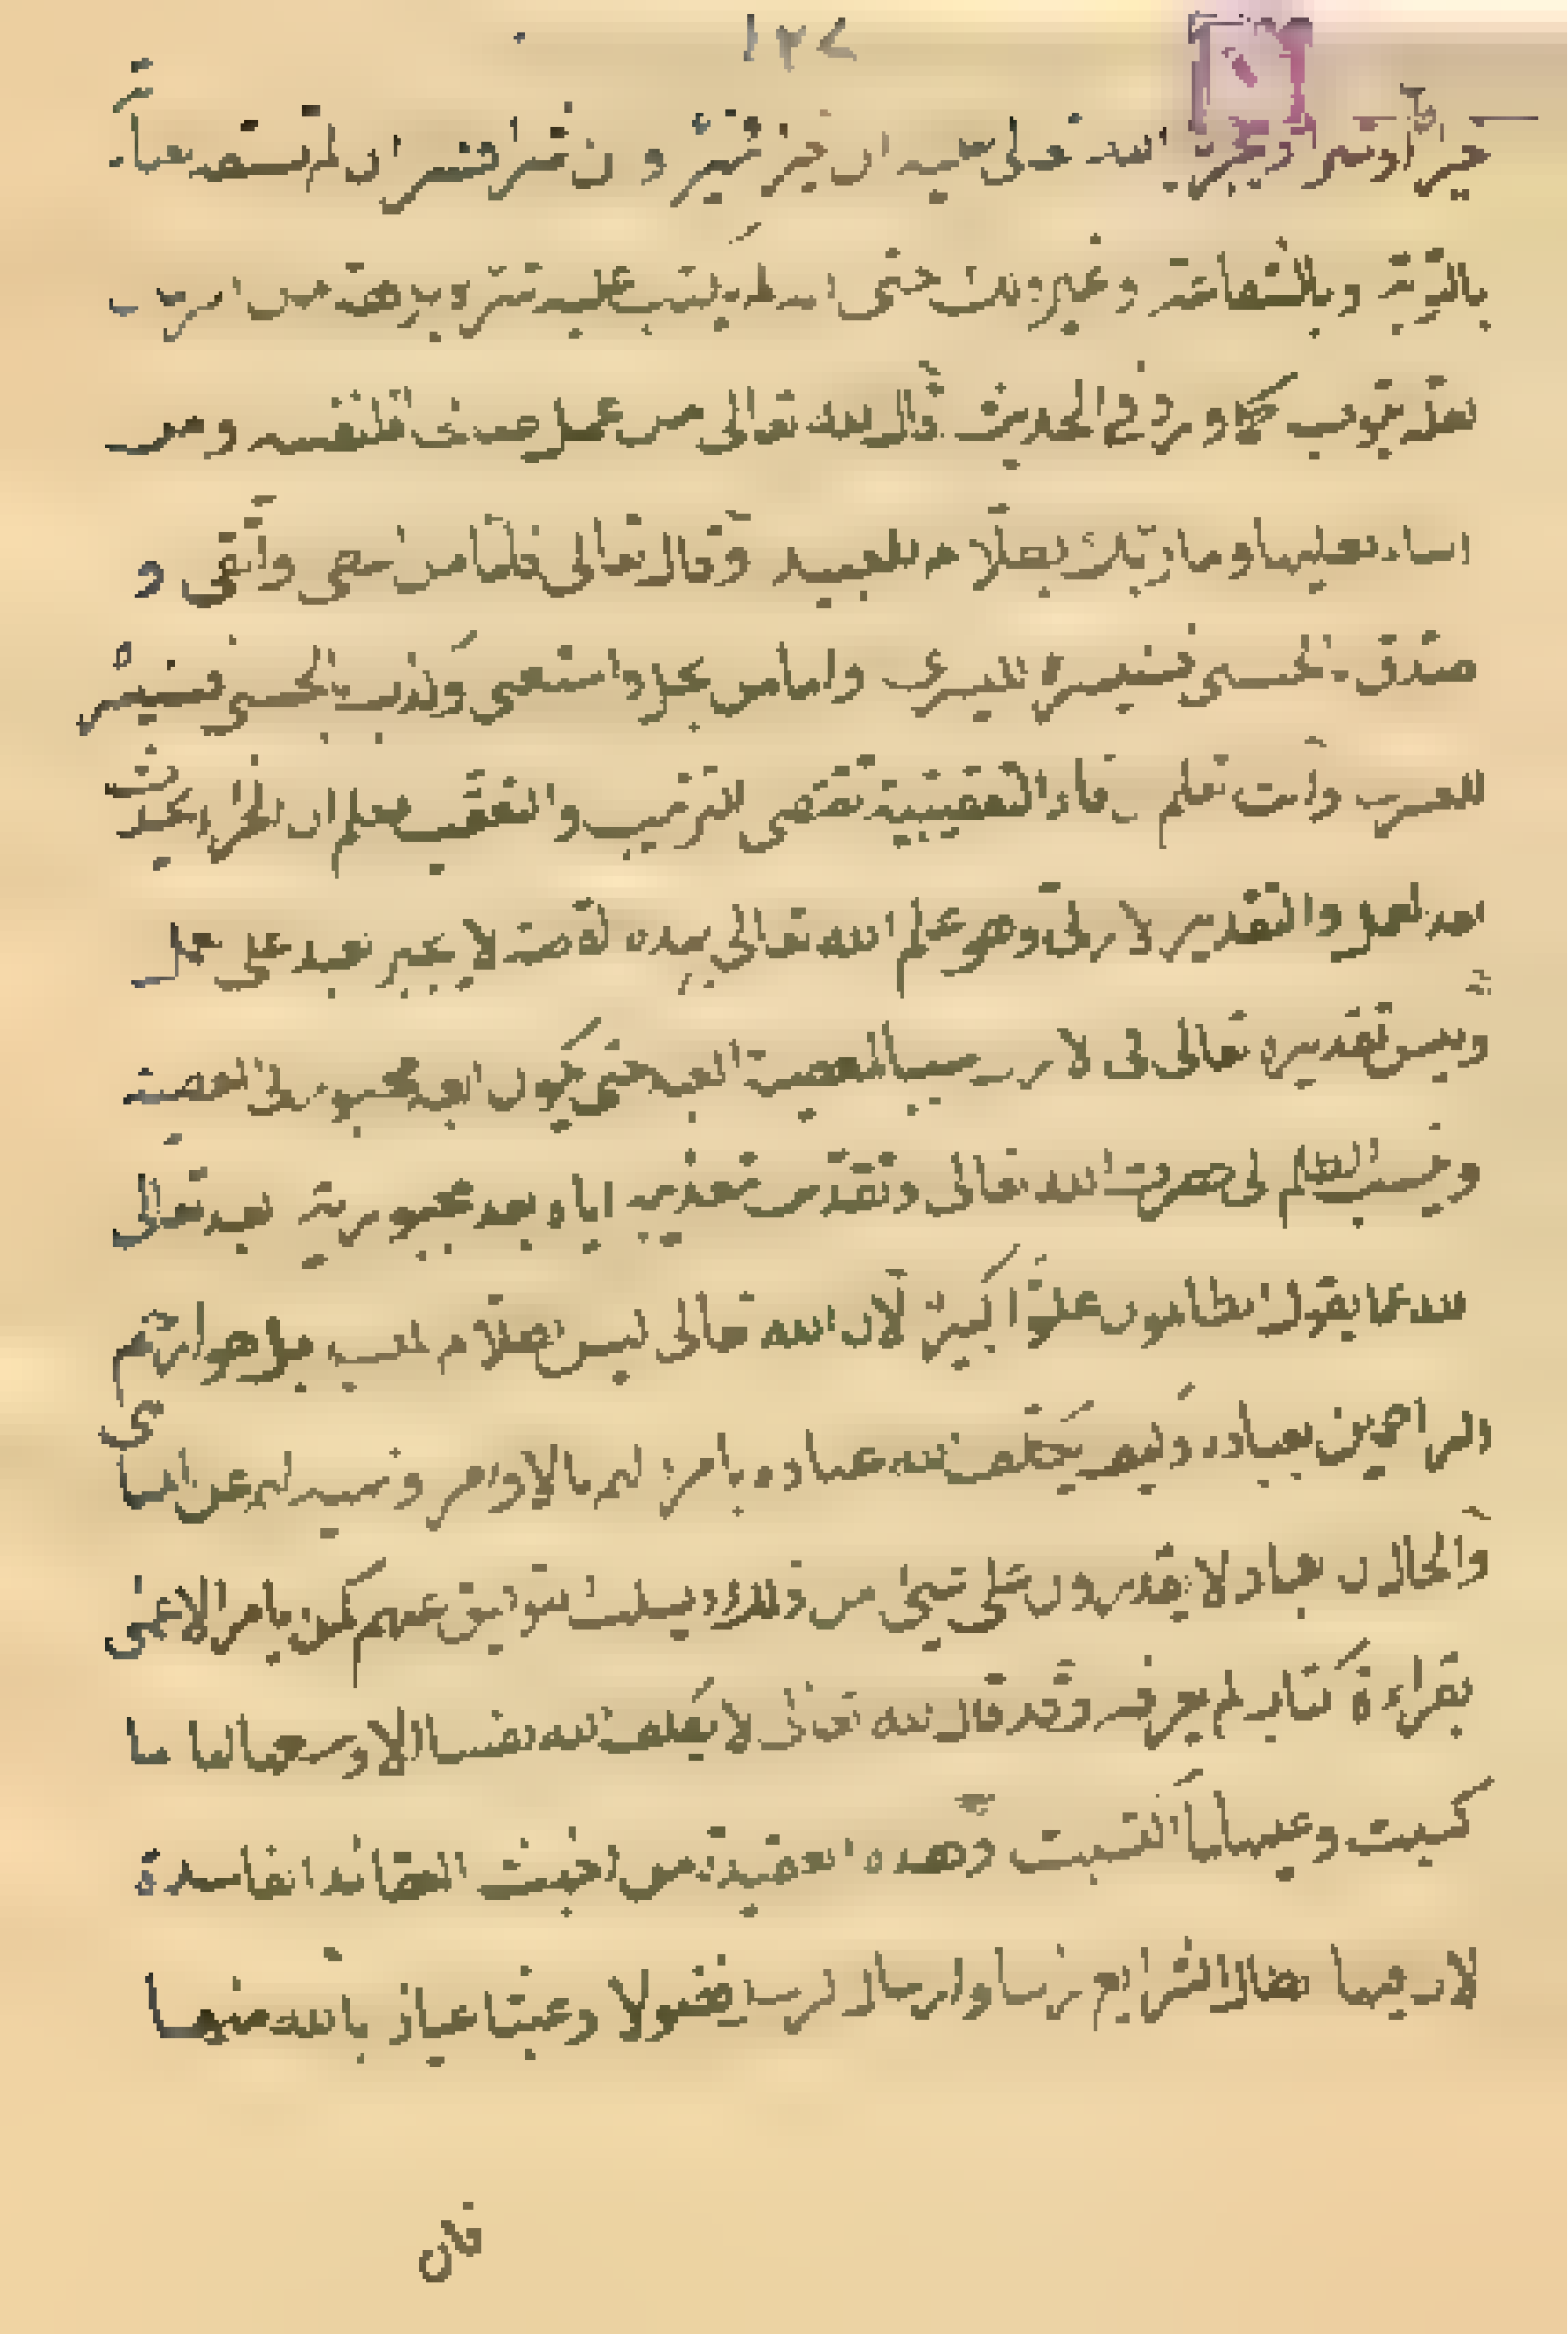 ١٢٧
خيراً او شراً ويجزيه الله تعالى عليه ان خيراً فخير وان شراً فشر ان لم تستصعباً
بالتوبة وبالشفاعة وغير ذلك حتى يتب عليه
بعد يتوب كما ورد في الحديث قال الله تعالى من عمل صالحا فلنفسه ومن
اساء فعليها وما ربك بظلام للعبيد وقال تعالى فاما من اعطى واتقى و
صدق بالحسنى فسنيسره لليسرى واما من بخل واستغنى وكذب بالحسنى فسنيسره
للعسرى وانت تعلم ان فاء التعقيبية تقتضي الترتيب والتعقب فعلم ان الجزاء يحدث
بعد العمل والتقدير الازلي وهو علم الله تعالى لا يجبر العبد على عمل
وليس تقديره تعالى في الازل سببا لمعصية العبد حتى يكون العبد مجبورا في المعصية
وينسب الظلم الى حضرت الله تعالى وتقدس بتعذيبه اياه بعد مجبوريته تعالى
الله عما يقول الظالمون علوا كبيرا لان الله تعالى ليس بظلام للعبيد بل هو ارحم
الراحمين بعباده وكيف يكلف الله عباده بامره لهم بالاوامر ونهيه لهم عن المناهى
والحال ان العباد لا يقدرون على شئ من ذلك ويسلب توفيق عنهم كمن يامر الاعمى
بقراءة كتاب لم يعرفه وقد قال الله تعالى لا يكلف الله نفسا الا وسعها لها ما
كسبت وعليها ما اكتسبت وهذه العقيدة من اخبث العقائد الفاسدة
لان فيها ابطال الشرايع وارسال الرسل فضولا وعبثا عياذ بالله منها
فان